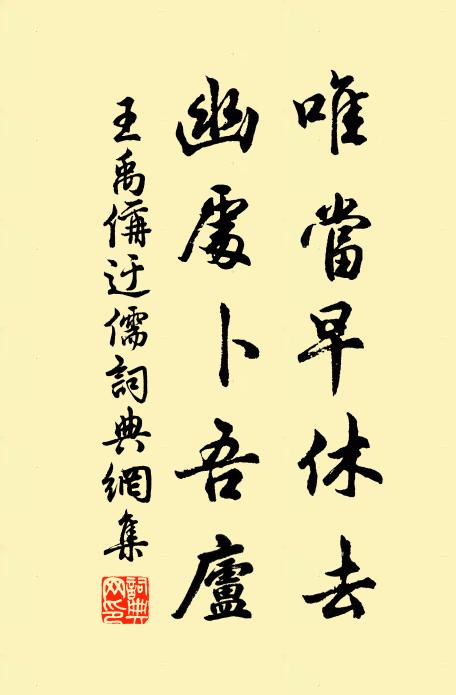 唯當早休去
幽處卜吾廬
王禹偁迂儒詞典網集
詞典網印